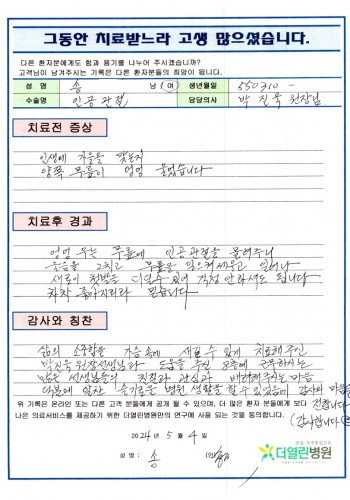 그동안 치료받느라 고생 많으셨습니다.
다른 환자분에게도 힘과 용기를 나누어 주시겠습니까?
고객님이 남겨주시는 기록은 다른 환자분들의 희망이 됩니다.
성 명 송 남 여 생년월일 550310 -
수술명 인공관절 담당의사 박진욱 원장님
치료전 증상
인생에 가을을 맞는지
양쪽 무릎이 엉엉 울었습니다
치료후 경과
엉엉 우는 무릎에 인공관절을 물려주니
울음을 그치고 무릎을 일으켜세우고 일어나
새로이 첫발을 디딜수 있어 걱정 안하셔도 됩니다
차차 좋아지리라 믿습니다
감사와 칭찬
삶의 소중함을 가슴속에 새길 수 있게 치료해주신
박진욱 원장선생님과 도움을 주신 근무하시는
많은 선생님들의 친절과 관심과 배려해주시는 마음
슬기로운 병원 생활을 할수 있었음에 감사의 마음을
전합니다
(감사합니다)
위 기록은 온라인 또는 다른 고객 분들에게 공개 될 수 있으며, 더 많은 환자 분들에게 보다
나은 의료서비스를 제공하기 위한 더열린병원만의 연구에 사용 되는 것을 동의합니다.
2024 년 5 월 4 일
성 명 : 송 (인)
더열린병원